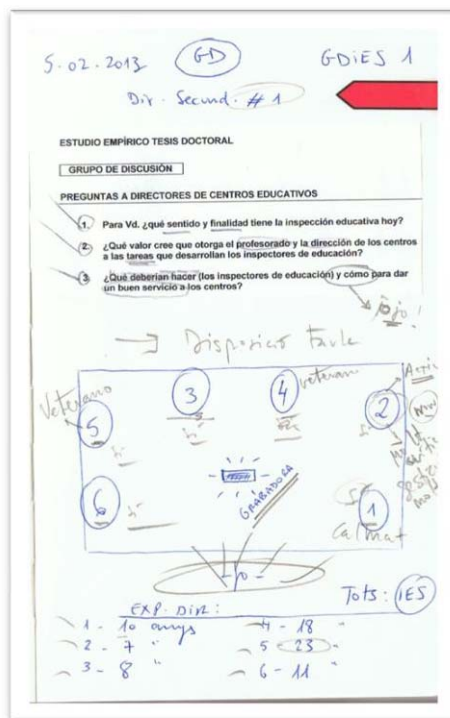 5.02.2013 GD GDiES 1
Dir. Secund. # 1
ESTUDIO EMPÍRICO TESIS DOCTORAL
GRUPO DE DISCUSIÓN
PREGUNTAS A DIRECTORES DE CENTROS EDUCATIVOS
1. Para Vd. ¿qué sentido y finalidad tiene la inspección educativa hoy?
2. ¿Qué valor cree que otorga el profesorado y la dirección de los centros
a las tareas que desarrollan los inspectores de educación?
3. ¿Qué deberían hacer (los inspectores de educación) y cómo para dar
un buen servicio a los centros?
ojo!
Disposició taula
Veterano 3 4 veterano 2
5
6 GRABADORA 1
Calmat
- jo -
Tots: IES
EXP. DIR:
1 - 10 anys 4 - 18 "
2 - 7 " 5 - 23 "
3 - 8 " 6 - 11